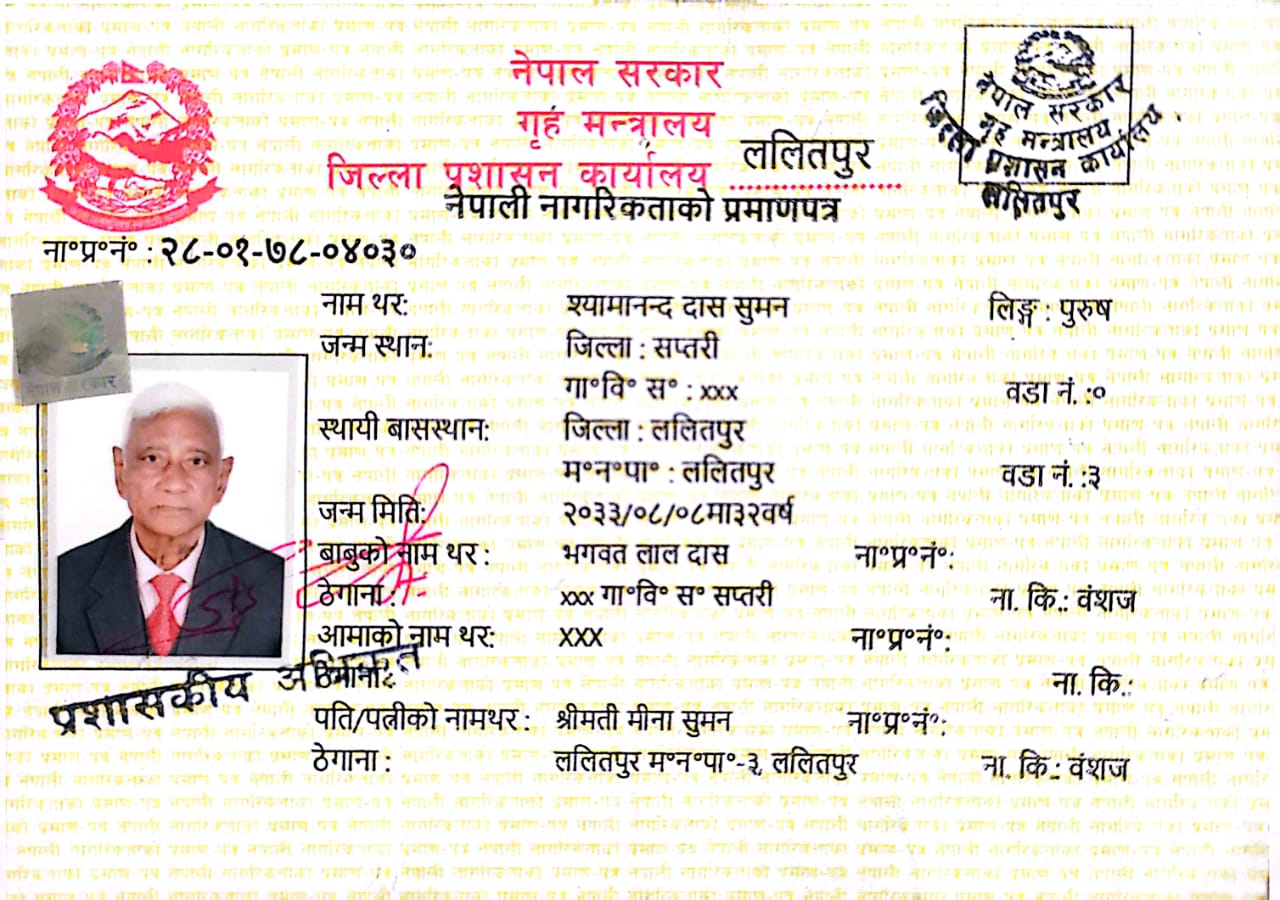 नेपाल सरकार
गृह मन्त्रालय
जिल्ला प्रशासन कार्यालय ललितपुर
नेपाली नागरिकताको प्रमाणपत्र
नेपाल सरकार
गृह मन्त्रालय
जिल्ला प्रशासन कार्यालय
ललितपुर
ना॰प्र॰नं॰ : २८-०१-७८-०४०३०
नेपाल सरकार
नाम थर: श्यामानन्द दास सुमन लिङ्ग : पुरुष
जन्म स्थान: जिल्ला : सप्तरी
गा॰वि॰ स॰ : xxx वडा नं. :०
स्थायी बासस्थान: जिल्ला : ललितपुर
म॰न॰पा॰ : ललितपुर वडा नं. :३
जन्म मिति: २०३३/०८/०८मा३२वर्ष
बाबुको नाम थर : भगवत लाल दास ना॰प्र॰नं॰:
ठेगाना : xxx गा॰वि॰ स॰ सप्तरी ना. कि.: वंशज
आमाको नाम थर: XXX ना॰प्र॰नं॰:
ठेगाना : ना. कि.:
प्रशासकीय अधिकृत
पति/पत्नीको नामथर : श्रीमती मीना सुमन ना॰प्र॰नं॰:
ठेगाना : ललितपुर म॰न॰पा॰-३, ललितपुर ना. कि.: वंशज